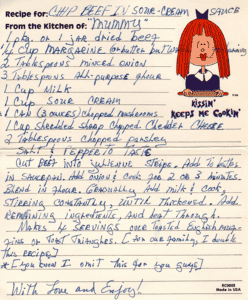 Recipe for: CHIP BEEF IN SOUR-CREAM SAUCE
From the Kitchen of: "Mummy"
1 pkg. or 1 jar dried beef
1/4 Cup MARGARINE or butter but
2 Tablespoons minced onion
3 Tablespoons All-purpose flour
1 Cup Milk
1 Cup SOUR CREAM
1 CAN (3 OUNCES) Chopped mushrooms
1 Cup shredded sharp Chedder CHEESE
2 Tablespoons Chopped parsley
Salt & PEPPER to TASTE
KISSIN'
KEEPS ME COOKIN'
CUT BEEF INTO julienne strips. Add To butter
in SAUCEPAN. Add ONION & COOK for 2 OR 3 MINUTES.
BLEND in flour. GRADUALLY Add milk & cook,
STIRRING CONSTANTLY, UNTIL THICKENED. Add
REMAINING ingredients, AND heat Through.
MAKES 4 SERVINGS over TOASTED ENGLISH muf-
fins or TOAST TRIANGLES. [for our family, I double
this recipe]
* [you know I omit this for you guys]
With Love and Enjoy!
Made in USA